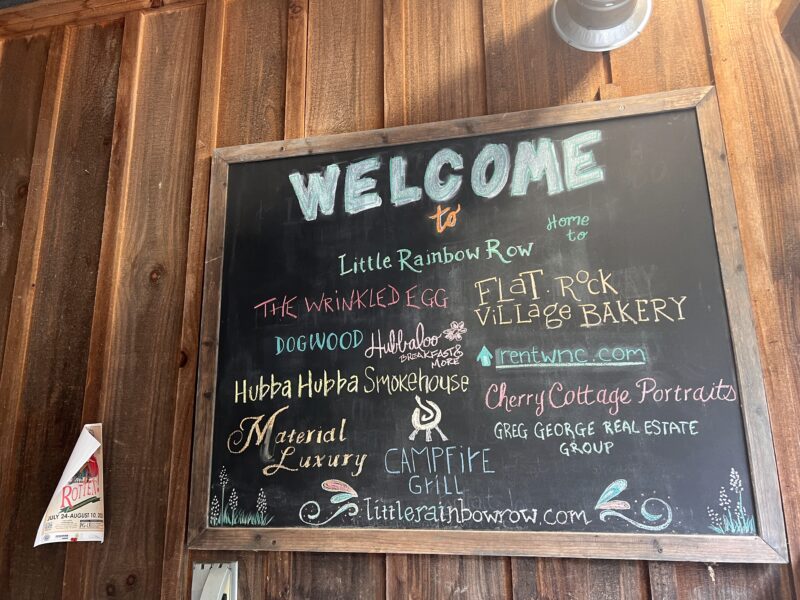 WELCOME
to
Home
to
Little Rainbow Row
THE WRINKLED EGG
FLaT.RoCK
ViLLage BAKERY
DOGWOOD
Hubbaloo
BREAKFAST &
MORE
rentwnc.com
Hubba Hubba Smokehouse
Cherry Cottage Portraits
Material
Luxury
GREG GEORGE REAL ESTATE
GROUP
CAMPFIRE
GRILL
littlerainbowrow.com
ROTTEN
JULY 24-AUGUST 10